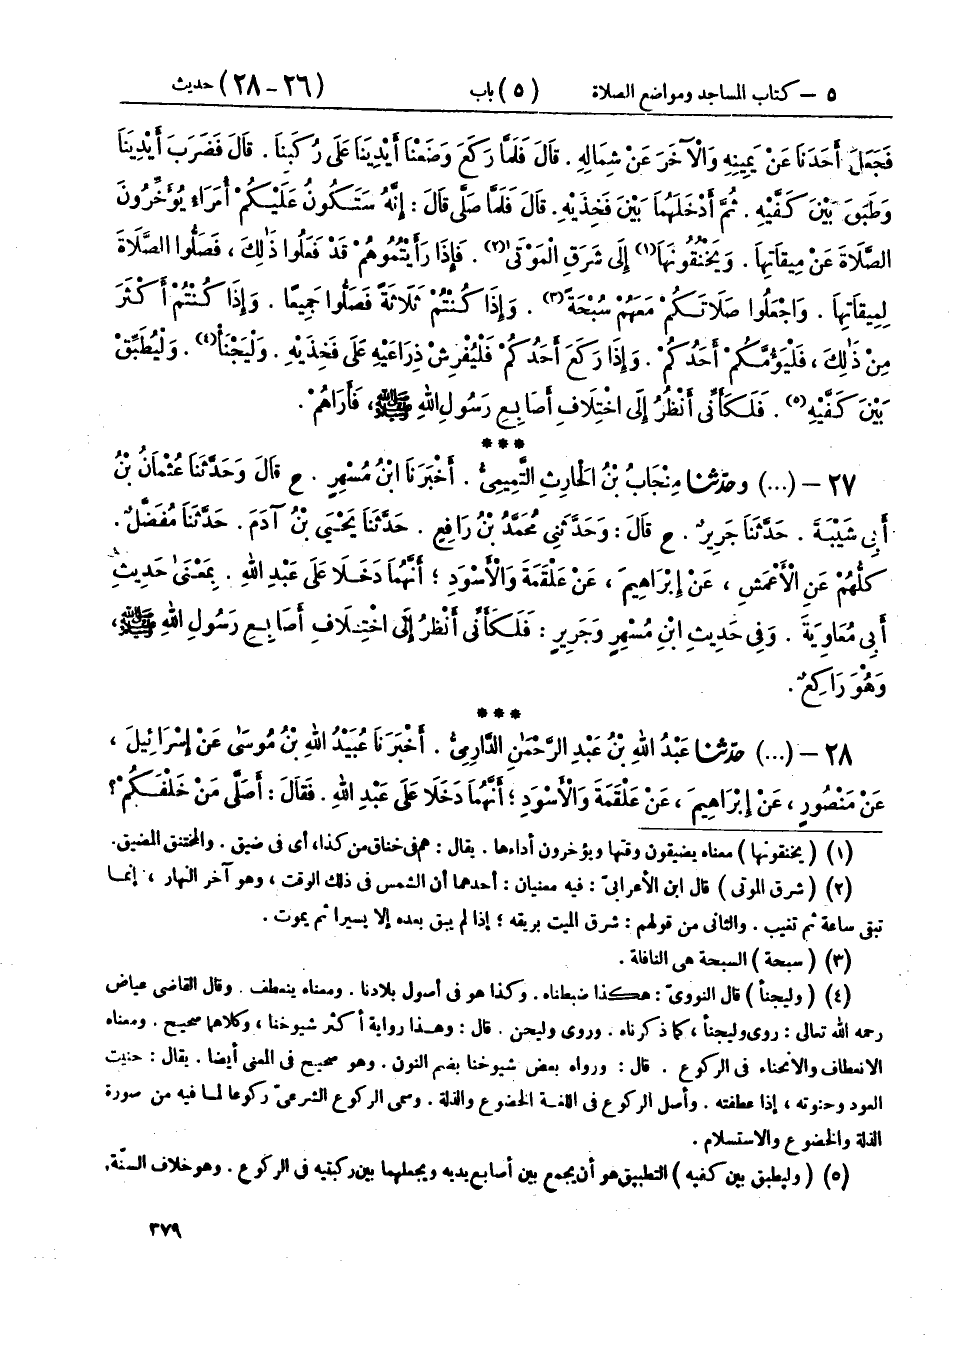 ٥ – كتاب المساجد ومواضع الصلاة (٥) باب (٢٦-٢٨) حديث
فَجَعَلَ أَحَدَنَا عَنْ يَمِينِهِ وَالْآخَرَ عَنْ شِمَالِهِ . قَالَ فَلَمَّا رَكَعَ وَضَعْنَا أَيْدِيَنَا عَلَى رُكَبِنَا . قَالَ فَضَرَبَ أَيْدِيَنَا
وَطَبَّقَ بَيْنَ كَفَّيْهِ . ثُمَّ أَدْخَلَهُمَا بَيْنَ فَخِذَيْهِ . قَالَ فَلَمَّا صَلَّى قَالَ : إِنَّهُ سَتَكُونُ عَلَيْكُمْ أُمَرَاءُ يُؤَخِّرُونَ
الصَّلَاةَ عَنْ مِيقَاتِهَا . وَيَخْنُقُونَهَا(١) إِلَى شَرَقِ الْمَوْتَىٰ(٢) . فَإِذَا رَأَيْتُمُوهُمْ قَدْ فَعَلُوا ذَٰلِكَ ، فَصَلُّوا الصَّلَاةَ
لِمِيقَاتِهَا . وَاجْعَلُوا صَلَاتَكُمْ مَعَهُمْ سُبْحَةً(٣) . وَإِذَا كُنْتُمْ ثَلَاثَةً فَصَلُّوا جَمِيعًا . وَإِذَا كُنْتُمْ أَكْثَرَ
مِنْ ذَٰلِكَ ، فَلْيَؤُمَّكُمْ أَحَدُكُمْ . وَإِذَا رَكَعَ أَحَدُكُمْ فَلْيُفْرِشْ ذِرَاعَيْهِ عَلَى فَخِذَيْهِ . وَلْيَجْنَأْ(٤) . وَلْيُطَبِّقْ
بَيْنَ كَفَّيْهِ(٥) . فَلَكَأَنِّي أَنْظُرُ إِلَى اخْتِلَافِ أَصَابِعِ رَسُولِ اللهِ ﷺ ، فَأَرَاهُمْ .
***
٢٧ – (...) وحدّثنا مِنْجَابُ بْنُ الْحَارِثِ التَّمِيمِيُّ . أَخْبَرَنَا ابْنُ مُسْهِرٍ . ح قَالَ وَحَدَّثَنَا عُثْمَانُ بْنُ
أَبِي شَيْبَةَ . حَدَّثَنَا جَرِيرٌ . ح قَالَ : وَحَدَّثَنِي مُحَمَّدُ بْنُ رَافِعٍ . حَدَّثَنَا يَحْيَى بْنُ آدَمَ . حَدَّثَنَا مُفَضَّلٌ .
كُلُّهُمْ عَنِ الْأَعْمَشِ ، عَنْ إِبْرَاهِيمَ ، عَنْ عَلْقَمَةَ وَالْأَسْوَدِ ؛ أَنَّهُمَا دَخَلَا عَلَى عَبْدِ اللهِ . بِمَعْنَى حَدِيثِ
أَبِي مُعَاوِيَةَ . وَفِي حَدِيثِ ابْنِ مُسْهِرٍ وَجَرِيرٍ : فَلَكَأَنِّي أَنْظُرُ إِلَى اخْتِلَافِ أَصَابِعِ رَسُولِ اللهِ ﷺ ،
وَهُوَ رَاكِعٌ .
***
٢٨ – (...) حدّثنا عَبْدُ اللهِ بْنُ عَبْدِ الرَّحْمَٰنِ الدَّارِمِيُّ . أَخْبَرَنَا عُبَيْدُ اللهِ بْنُ مُوسَىٰ عَنْ إِسْرَائِيلَ ،
عَنْ مَنْصُورٍ ، عَنْ إِبْرَاهِيمَ ، عَنْ عَلْقَمَةَ وَالْأَسْوَدِ ؛ أَنَّهُمَا دَخَلَا عَلَى عَبْدِ اللهِ . فَقَالَ : أَصَلَّى مَنْ خَلْفَكُمْ ؟
(١) ( يخنقونها ) معناه يضيقون وقتها ويؤخرون أداءها . يقال : هم فى خناق من كذا، أى فى ضيق . والمختنق المضيق.
(٢) ( شرق الموتى ) قال ابن الأعرابىّ : فيه معنيان : أحدهما أن الشمس فى ذلك الوقت ، وهو آخر النهار ، إنما
تبقى ساعة ثم تغيب . والثانى من قولهم : شرق الميت بريقه ؛ إذا لم يبق بعده إلا يسيرا ثم يموت .
(٣) ( سبحة ) السبحة هى النافلة .
(٤) ( وليجنأ ) قال النووىّ : هكذا ضبطناه . وكذا هو فى أصول بلادنا . ومعناه ينعطف . وقال القاضى عياض
رحمه الله تعالى : روى وليجنأ ، كما ذكرناه . وروى وليحن . قال : وهذا رواية أكثر شيوخنا ، وكلاهما صحيح . ومعناه
الانعطاف والانحناء فى الركوع . قال : ورواه بعض شيوخنا بضم النون . وهو صحيح فى المعنى أيضا . يقال : حنيت
العود وحنوته ، إذا عطفته . وأصل الركوع فى اللغة الخضوع والذلة . وسمى الركوع الشرعىّ ركوعا لما فيه من صورة
الذلة والخضوع والاستسلام .
(٥) ( وليطبق بين كفيه ) التطبيق هو أن يجمع بين أصابع يديه ويجعلهما بين ركبتيه فى الركوع . وهو خلاف السنّة.
٣٧٩